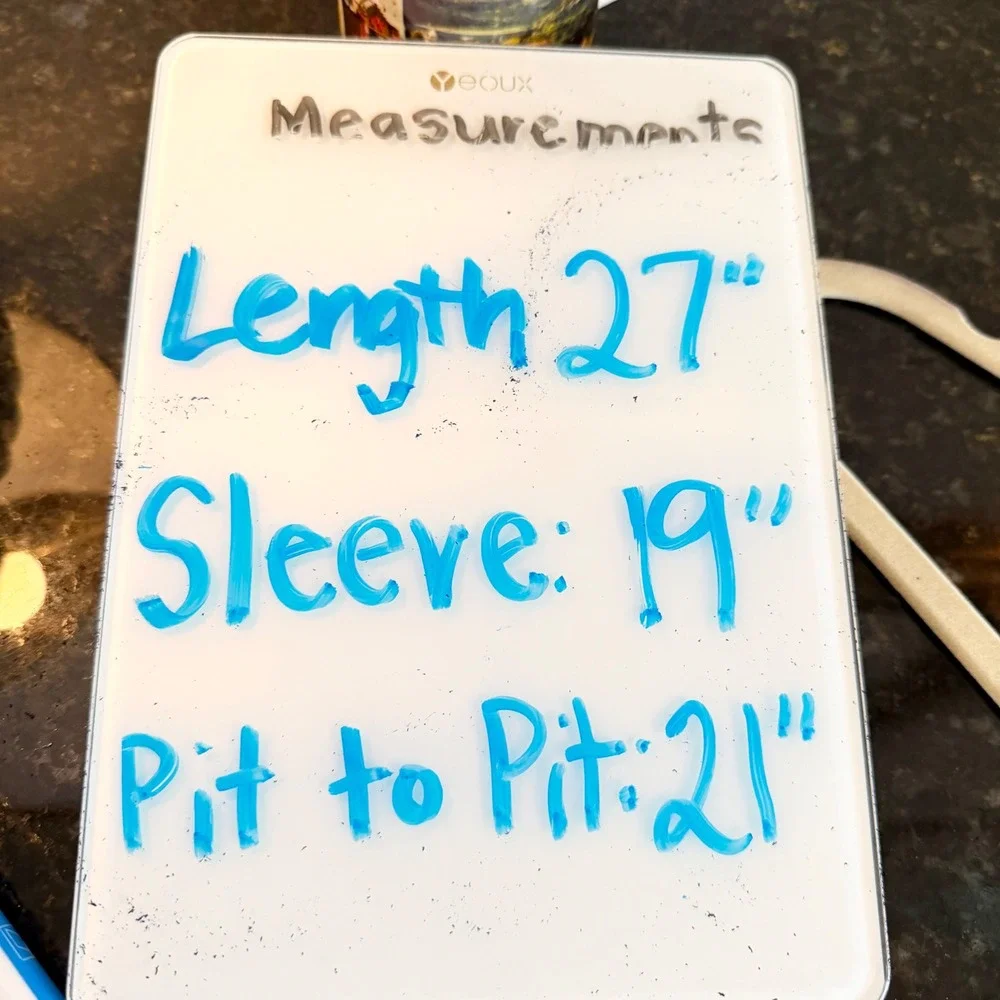 Yeoux
Measurements
Length 27"
Sleeve: 19"
Pit to Pit: 21"